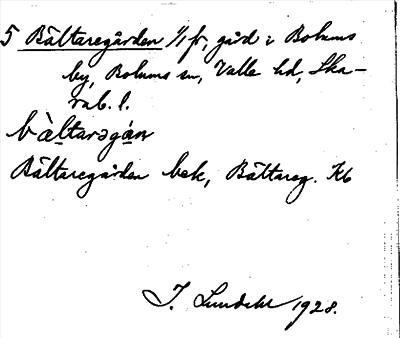 5 Bältaregården 1/1 fr, gård i Bolums
by, Bolums sn, Valle hd, Ska-
rab. l.
bàltarəgán
Bältaregården bek, Bältareg. Kb
J. Lundahl 1928.